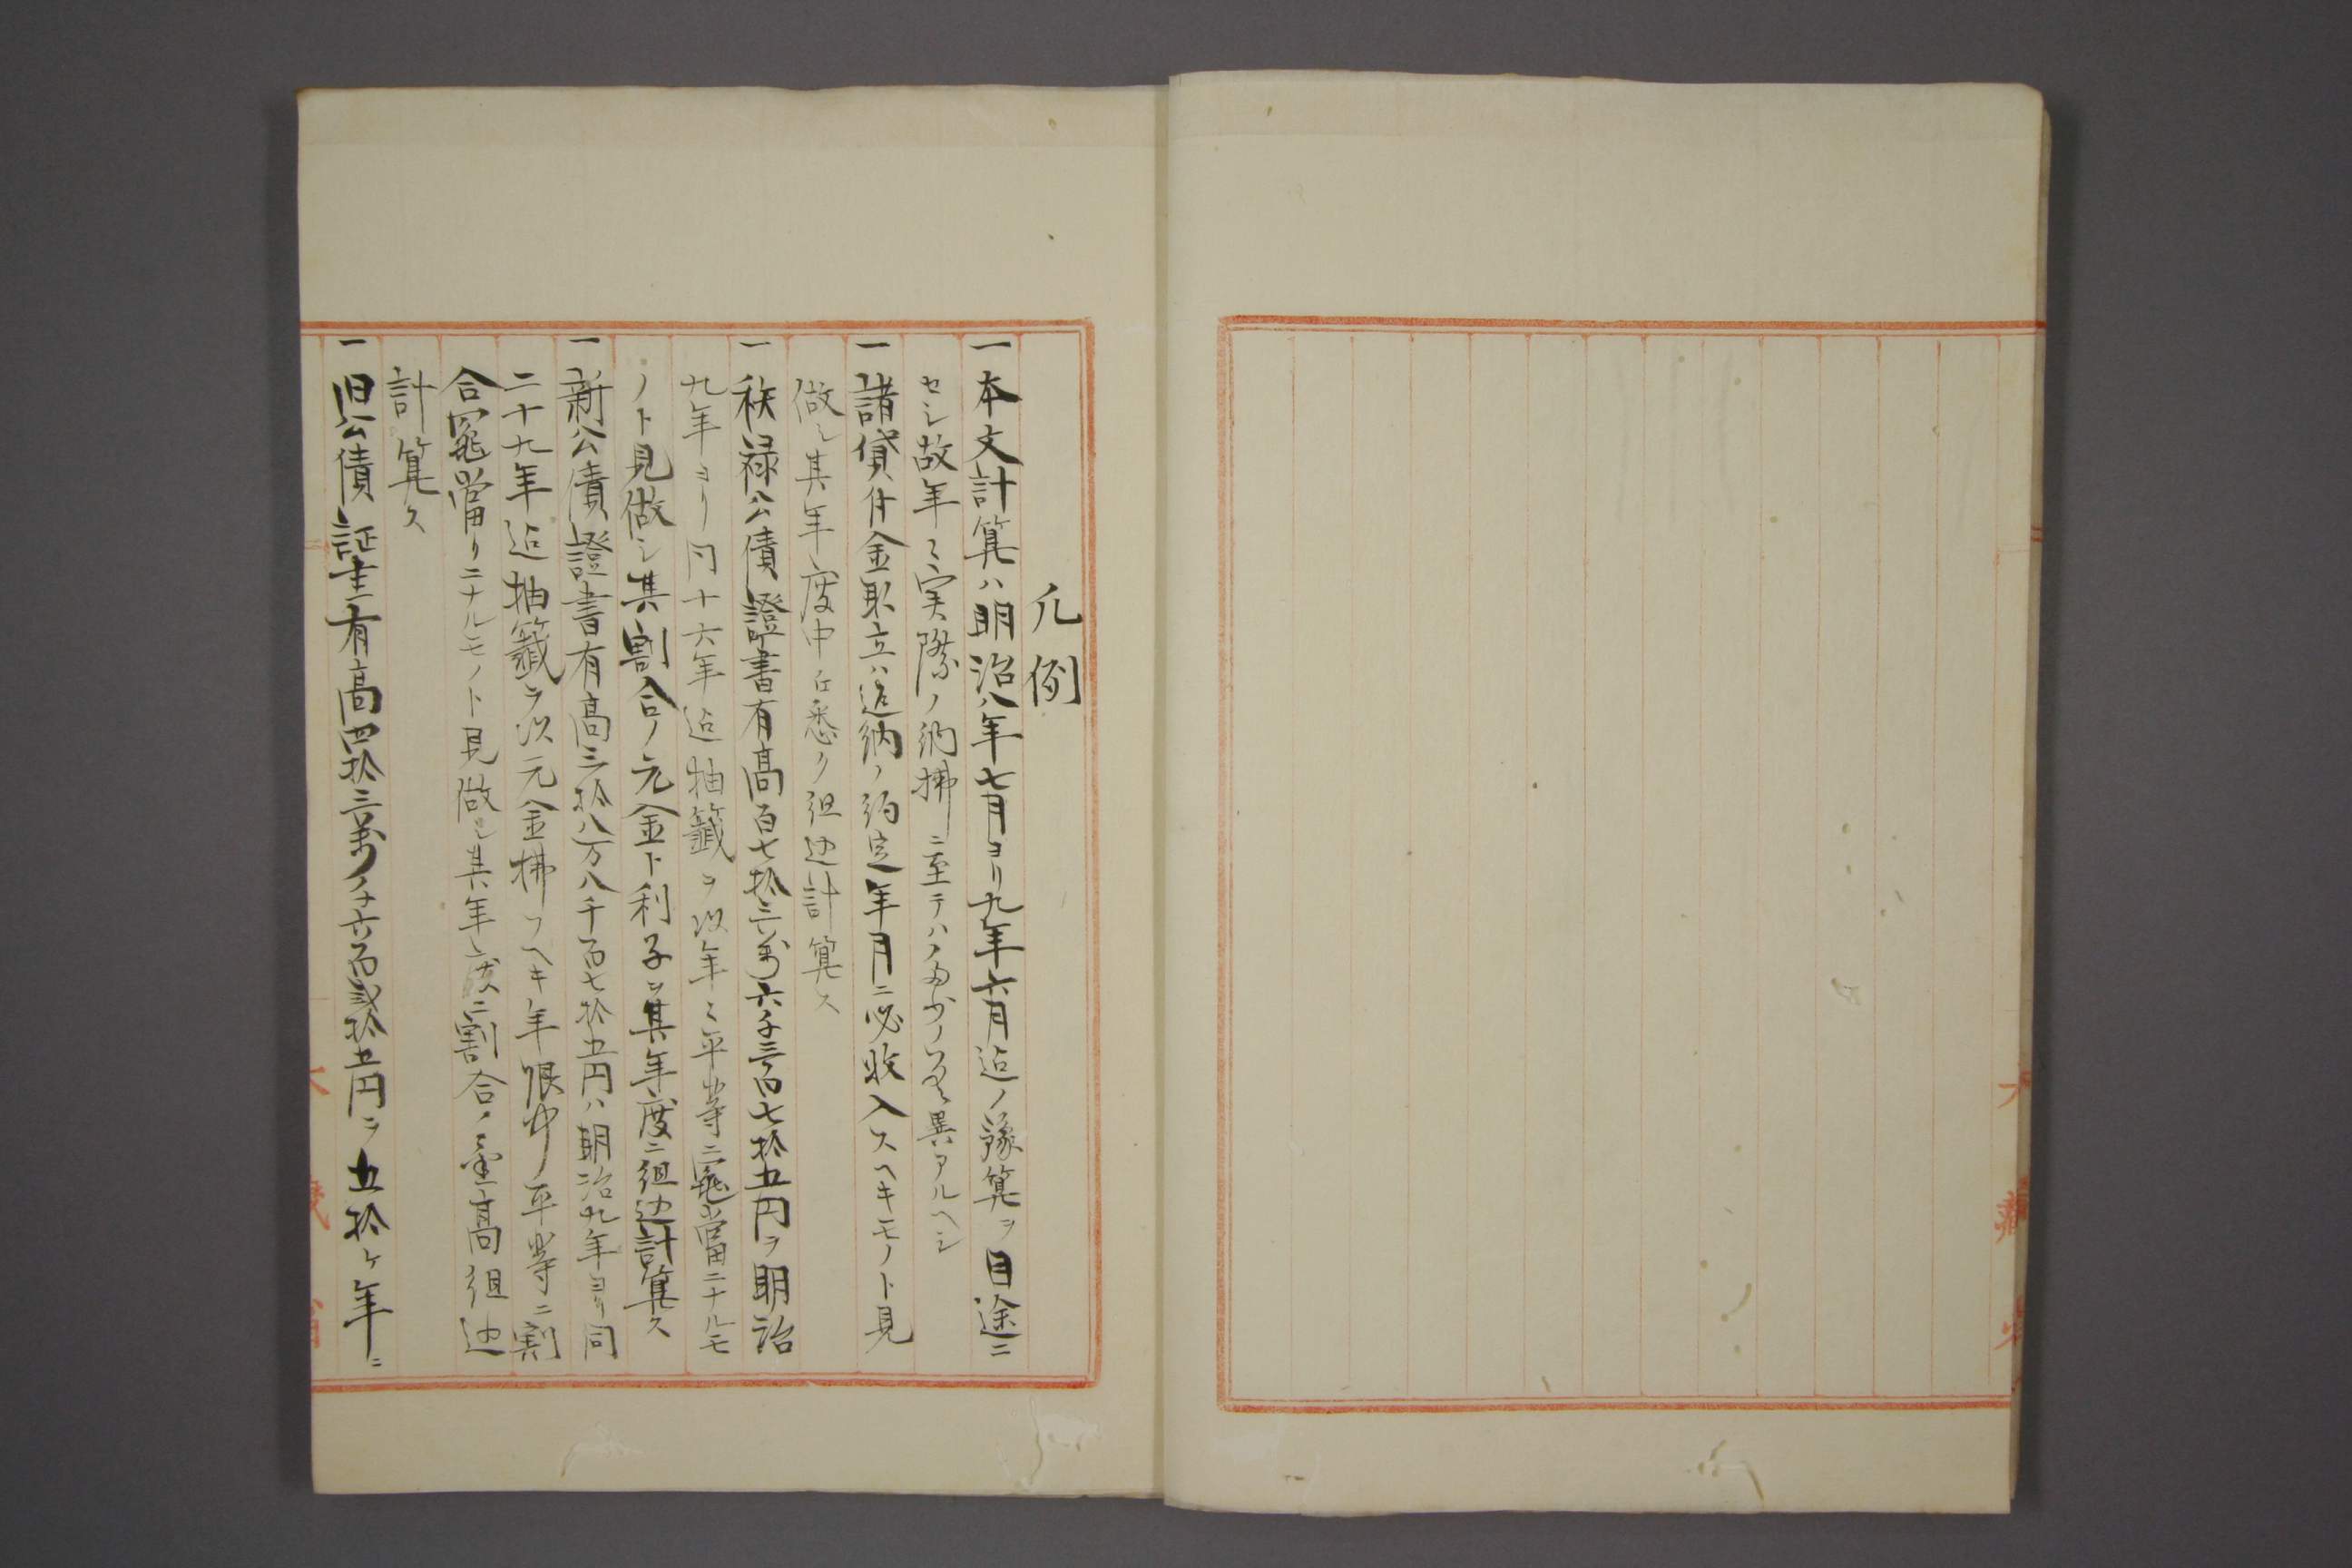 凡例
一本文計算ハ明治八年七月ヨリ九年六月迠ノ豫算ヲ目途ニ
セシ故年々実際ノ納拂ニ至テハ多少ノ差異アルヘシ
一諸貸付金取立ハ返納ノ約定年月ニ必收入スヘキモノト見
做シ其年度中ニ悉ク組込計算ス
一秩禄公債證書有高百七拾三萬六千三百七拾五円ヲ明治
九年ヨリ同十六年迠抽籤ヲ以年々平等ニ籤當ニナルモ
ノト見做シ其割合ノ元金ト利子ヲ其年度ニ組込計算ス
一新公債證書有高三拾八万八千百七拾五円ハ明治九年ヨリ同
二十九年迠抽籤ヲ以元金拂フヘキ年限中平等ニ割
合籤當リニナルモノト見做シ其年度ニ割合ノ金高組込
計算ス
一旧公債証書有高四拾三萬八千六百貳拾五円ヲ五拾ケ年ニ
大藏省